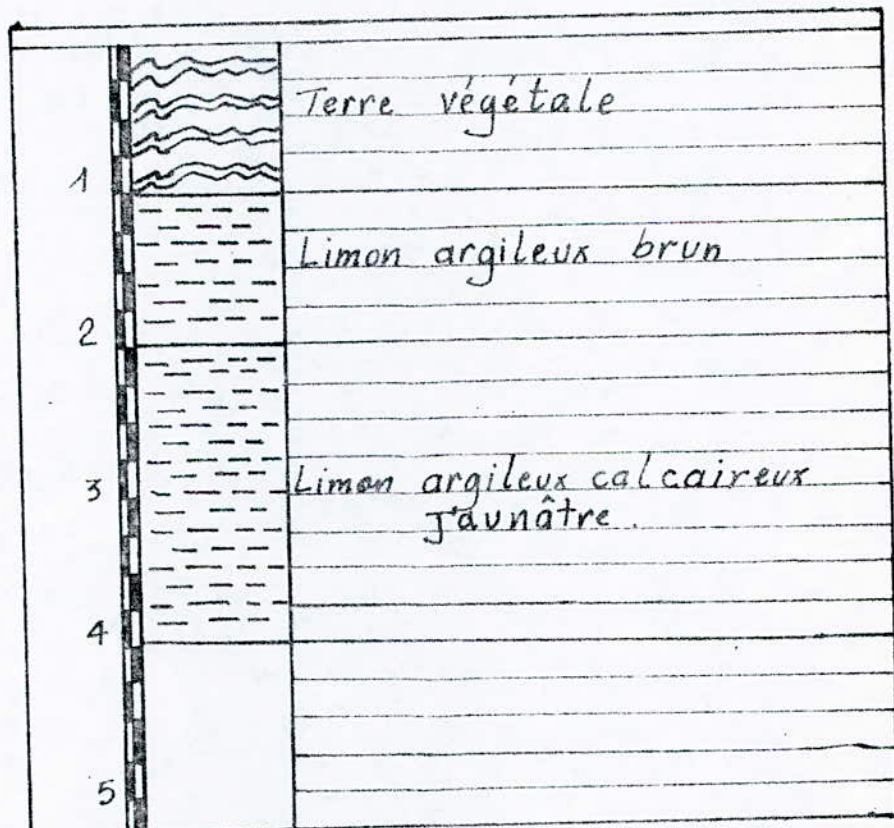 Terre végétale
1
Limon argileux brun
2
3
Limon argileux calcaireux
jaunâtre.
4
5